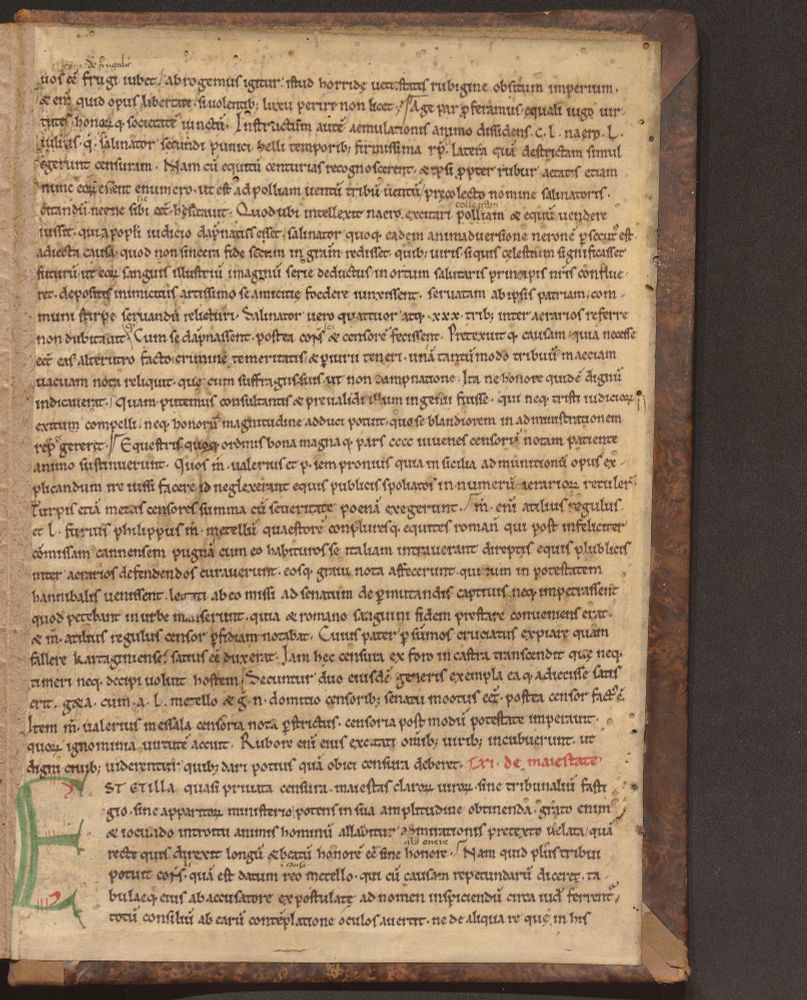 uos eē frugi iubet. abrogemus igitur istud horride uetustatis rubigine obsitum imperium.
& eni quid opus libertate si uolentib; luxu perire non licet. Age par pferamus equali iugo uir
tutis honorq; societate iunctū. Instructum autē aemulationis animo dissidens. c. l. nero. l.
iulius. q. salinator secundi punici belli temporib; firmissima rp. latera quā destrictam simul
egerunt censuram. Nam cū equitū centurias recognoscerent. & ipsi ppter robur aetatis etiam
nunc eorū essent e numero. ut est ad polliam uentū tribū uentū preco lecto nomine salinatoris.
citandū necne sibi eēt hesitauit. Quod ubi intellexit nero. excitari polliam & equū uendere
iussit. quia populi iudicio dapnatus esset. salinator quoq; eadem animaduersione neronē psecut' est
adiecta causa. quod non sincera fide secum in gratiā redisset. quib; uiris siquis celestium significasset
futurū ut eorū sanguis illustriū imaginū serie deductus in ortum salutaris principis nr̄is conflue
ret. depositis inimicitiis artissimo se amicitie foedere iunxissent. seruatam ab ipsis patriam. com
muni stirpe seruandū relicturi. Salinator uero quattuor atq; .xxx. trib; inter aerarios referre
non dubitauit. Cum se dapnassent. postea cons & censorē fecissent. Pretexuit q; causam. quia necesse
eēt eas alterutro facto crimine temeritatis & piurii teneri. unā tantūmodo tribuū maeciam
uacuam nota reliquit. que eum suffragiis suis ut non dampnatione. Ita ne honore quidē dignū
indicauerat. Quam putemus constantis & preualidi illum ingenii fuisse. qui neq; tristi iudiciorū
exitum compelli. neq; honorū magnitudine adduci potuit. quo se blandiorem in administrationem
rep gereret. Equestris quoq; ordinis bona magna q; pars cccc iuuenes censoriā notam patiente
animo sustinuerunt. Quos m. ualerius et p. sempronius quia in sicilia ad munitionū opus ex
plicandum ire iussi facere id neglexerant equis publicis spoliatos in numerū aerariorū retuler
Turpis etiā metus censores summa cū seueritate poenā exegerunt. m. eni atilius regulus.
et l. furius philippus m. metellū quaestorē complures q. equites romani qui post infeliciter
cōmissam cannensem pugnā cum eo habituros se italiam intrauerant direptis equis publicis
inter aerarios defendendos curauerunt. eosq; graui nota affecerunt. qui cum in potestatem
hannibalis uenissent. legati ab eo missi ad senatum de pmutandis captiuis neq; impetrassent
quod petebant in urbe manserunt. quia & romano sanguini fidem prestare conueniens erat.
& m. atilius regulus censor pfidiam notabat. Cuius pater p sumos cruciatus expiare quam
fallere kartaginienses satius eē duxerat. Iam hec censura ex foro in castra transcendit que neq;
timeri neq; decipi uoluit hostem. Secuntur duo eiusdē generis exempla ea q; adiecisse satis
erit. geta. cum. a. l. metello & g. n. domitio censorib; senatu mootus eēt. postea censor fact' ē.
Item m. ualerius messala censoria nota pstrictus. censoria post modū potestate imperauit.
quorū ignominia uirtutē accuit. Rubore eni eius excitati omib; uirib; incubuerunt. ut
digni ciuib; uiderentur quib; dari potius quā obici censura deberet. .Xi. de maiestate.
EST ET ILLA quasi priuata censura. maiestas clarorū uirorū. sine tribunaliū fasti
gio. sine apparitorū ministerio potens in sua amplitudine obtinenda. grato enim
& iocundo introitu animis hominū allabitur admirationis pretexto uelata. quā
recte quis dixerit longū & beatū honorē eē sine honore. Nam quid plus tribui
potuit cons. quā est datum reo metello. qui cū causam repetundarū diceret. ta
bulaeq; eius ab accusatore expostulate ad nomen inspiciendū circa iudi ferrent.
totū consiliū ab earū contēplatione oculos auertit. ne de aliqua re que in his